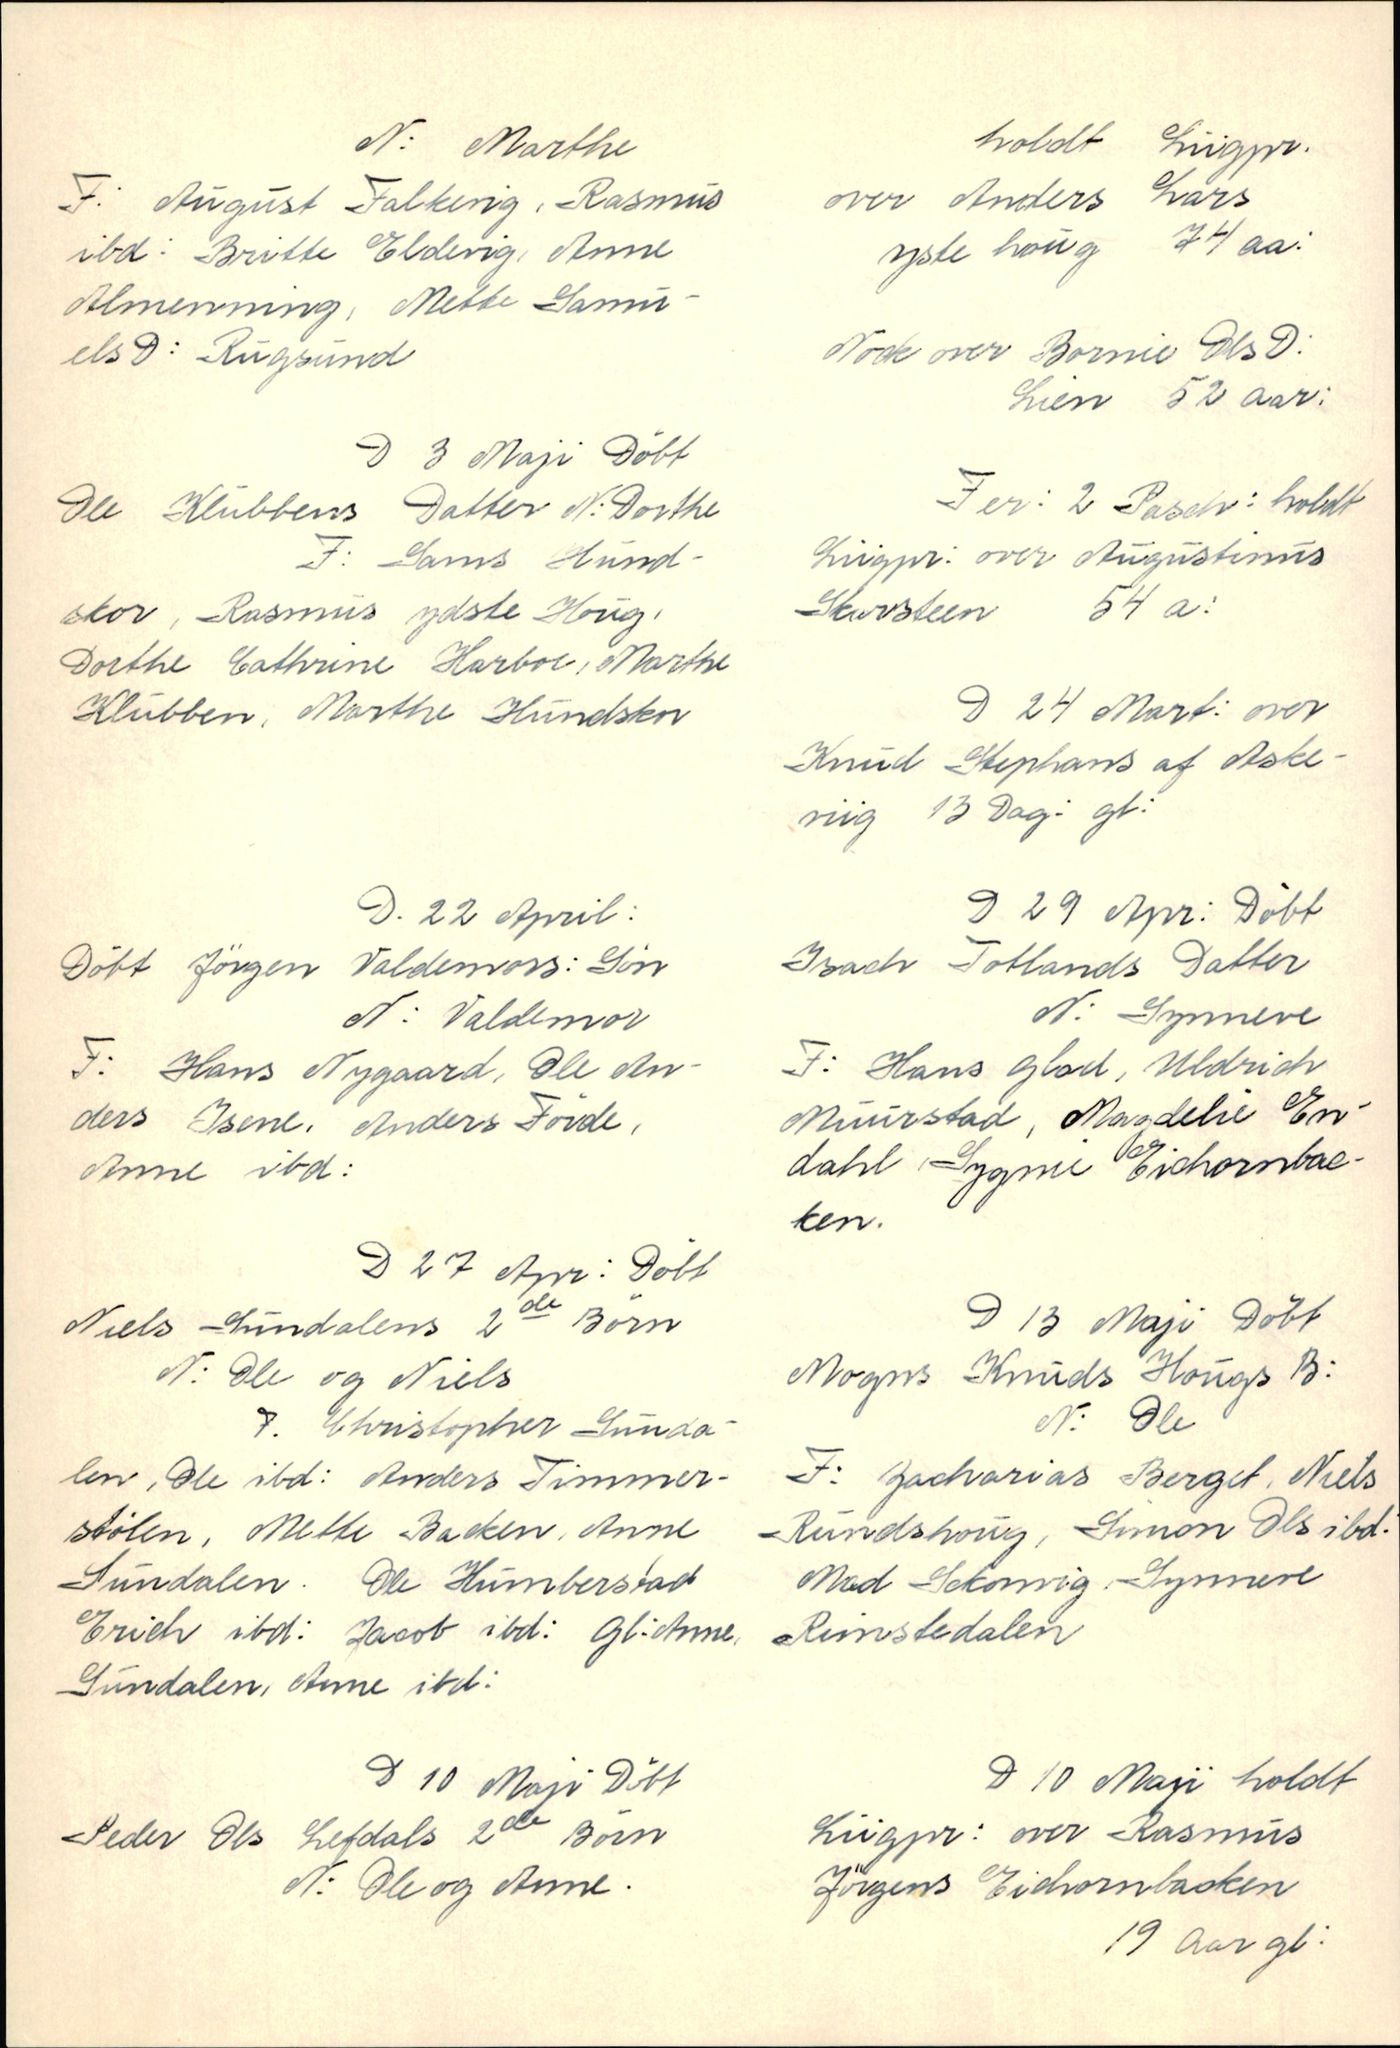 N: Marthe
F: August Falkevig, Rasmus
ibd: Britte Eldevig, Anne
Almenning, Mette Samu-
elsD: Rugsund
D 3 Maji Döbt
Ole Klubbens Datter N: Dorthe
F: Sams Hund-
skor, Rasmus ydste Houg,
Dorthe Cathrine Harboe, Marthe
Klubben, Marthe Hundskor
D. 22 April:
Döbt Jörgen Valdemors: Sön
N: Valdemor
F: Hans Nygaard, Ole An-
ders Isene, Anders Förde,
Anne ibd:
D 27 Apr: Döbt
Niels Sundalens 2de Börn
N: Ole og Niels
F. Christopher Sunda-
len, Ole ibd: Anders Timmer-
stölen, Mette Backen, Anne
Sundalen. Ole Humberstad
Erich ibd: Jacob ibd: Gl: Anne,
Sundalen, Anne ibd:
D 10 Maji Döbt
Peder Ols Lefdals 2de Börn
N: Ole og Anne.
holdt Liigpr.
over Anders Lars
yste houg 74 aa:
Nock over Bornie OlsD:
Lien 52 aar:
Fer: 2 Pasch: holdt
Liigpr: over Augustinus
Skarsteen 54 a:
D 24 Mart: over
Knud Stephans af Aske-
viig 13 Dag: gl:
D 29 Apr: Döbt
Isach Totlands Datter
N: Synneve
F: Hans Glad, Uldrich
Muurstad, Magdelie En-
dahl, Sygnie Eichornbac-
ken.
D 13 Maji Döbt
Mogns Knuds Hougs B:
N: Ole
F: Zacharias Berget, Niels
Rundshoug, Simon Ols ibd:
Mad Sckorvig, Synneve
Rimstedalen
D 10 Maji holdt
Liigpr: over Rasmus
Jörgens Eichornbacken
19 Aar gl: